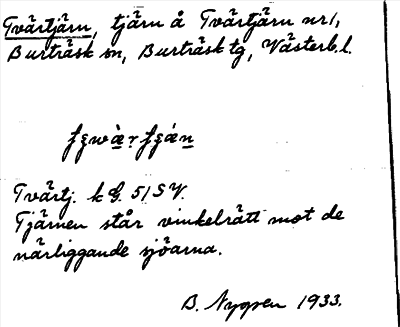 Tvärtjärn, tjärn å Tvärtjärn nr 1,
Burträsk sn, Burträsk tg, Västerb. l.
Tvärtj. k G. 51 S V.
Tjärnen står vinkelrätt mot de
närliggande sjöarna.
B. Nygren 1933.